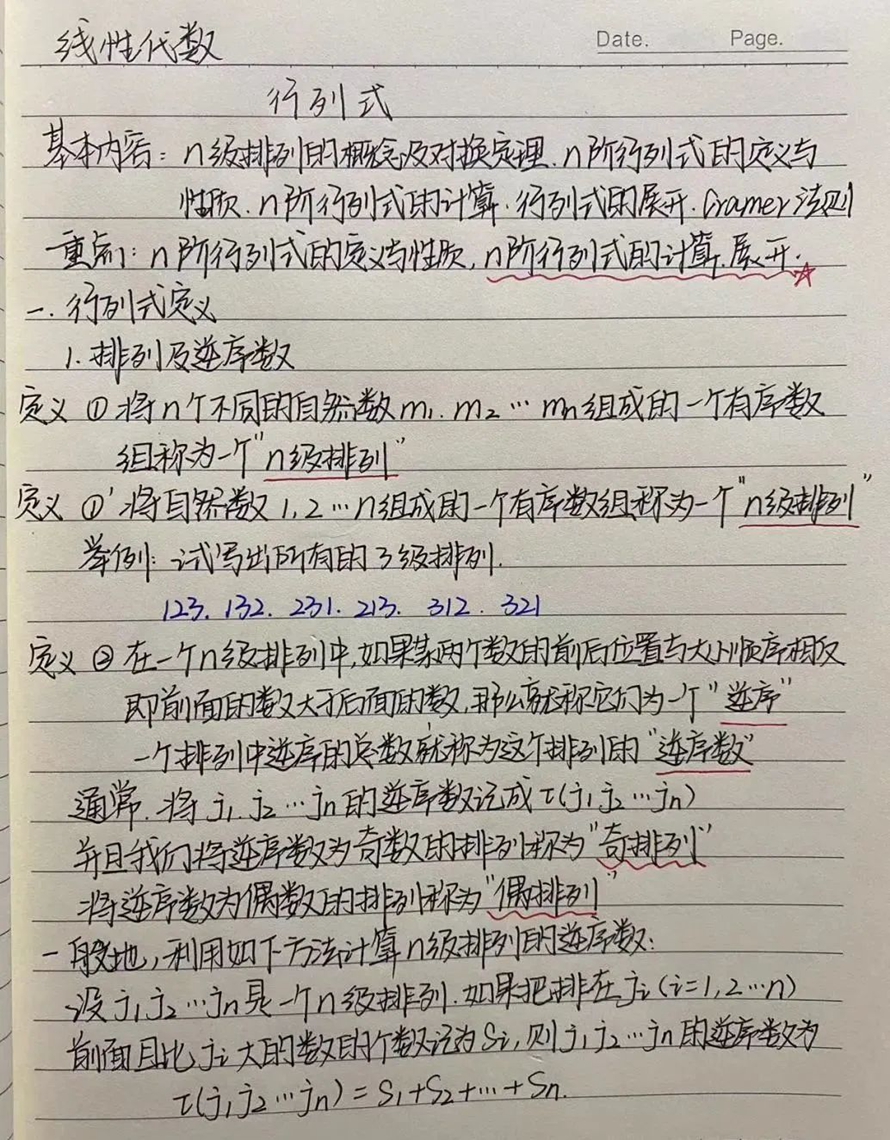 线性代数
Date. Page.
行列式
基本内容：n级排列的概念及对换定理.n阶行列式的定义与
性质.n阶行列式的计算.行列式的展开.Cramer法则
重点：n阶行列式的定义与性质,n阶行列式的计算.展开.☆
一.行列式定义
1.排列及逆序数
定义①将n个不同的自然数m₁.m₂…mₙ组成的一个有序数
组称为一个"n级排列"
定义①'将自然数1,2…n组成的一个有序数组称为一个"n级排列"
举例：试写出所有的3级排列.
123.132.231.213.312.321
定义②在一个n级排列中,如果某两个数的前后位置与大小顺序相反
即前面的数大于后面的数,那么就称它们为一个"逆序"
一个排列中逆序的总数就称为这个排列的"逆序数"
通常.将j₁.j₂…jₙ的逆序数记成τ(j₁j₂…jₙ)
并且我们将逆序数为奇数的排列称为"奇排列"
将逆序数为偶数的排列称为"偶排列"
一般地,利用如下方法计算n级排列的逆序数：
设j₁j₂…jₙ是一个n级排列.如果把排在jᵢ(i=1,2…n)
前面且比jᵢ大的数的个数记为Sᵢ,则j₁j₂…jₙ的逆序数为
τ(j₁j₂…jₙ)=S₁+S₂+…+Sₙ.